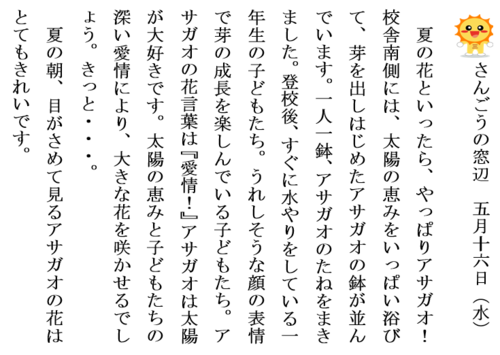 さんごうの窓辺　五月十六日（水）
　夏の花といったら、やっぱりアサガオ！
校舎南側には、太陽の恵みをいっぱい浴び
て、芽を出しはじめたアサガオの鉢が並ん
でいます。一人一鉢、アサガオのたねをまき
ました。登校後、すぐに水やりをしている一
年生の子どもたち。うれしそうな顔の表情
で芽の成長を楽しんでいる子どもたち。ア
サガオの花言葉は『愛情！』アサガオは太陽
が大好きです。太陽の恵みと子どもたちの
深い愛情により、大きな花を咲かせるでし
ょう。きっと・・・。
　夏の朝、目がさめて見るアサガオの花は
とてもきれいです。